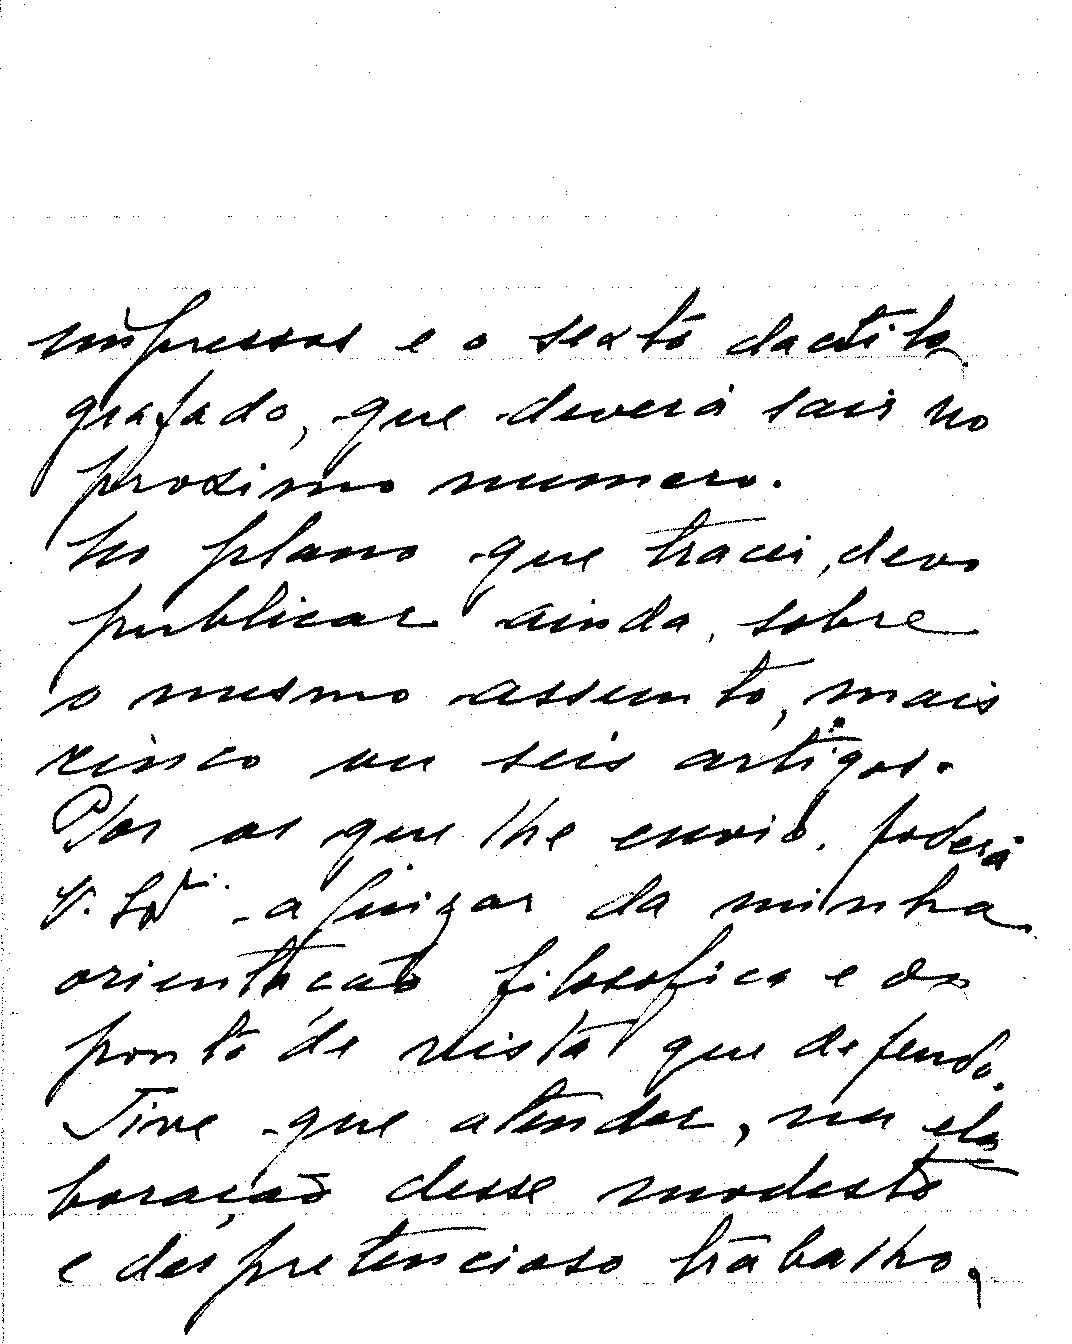 impressos e o sexto dactilo
grafado, que deverá sair no
proximo numero.
No plano que tracei, devo
publicar ainda, sobre
o mesmo assunto, mais
cinco ou seis artigos.
Por os que lhe envio, poderá
V. Sa. ajuizar da minha
orientação filosofica e do
ponto de vista que defendo.
Tive que atender, na ela
boração desse modesto
e despretencioso trabalho,